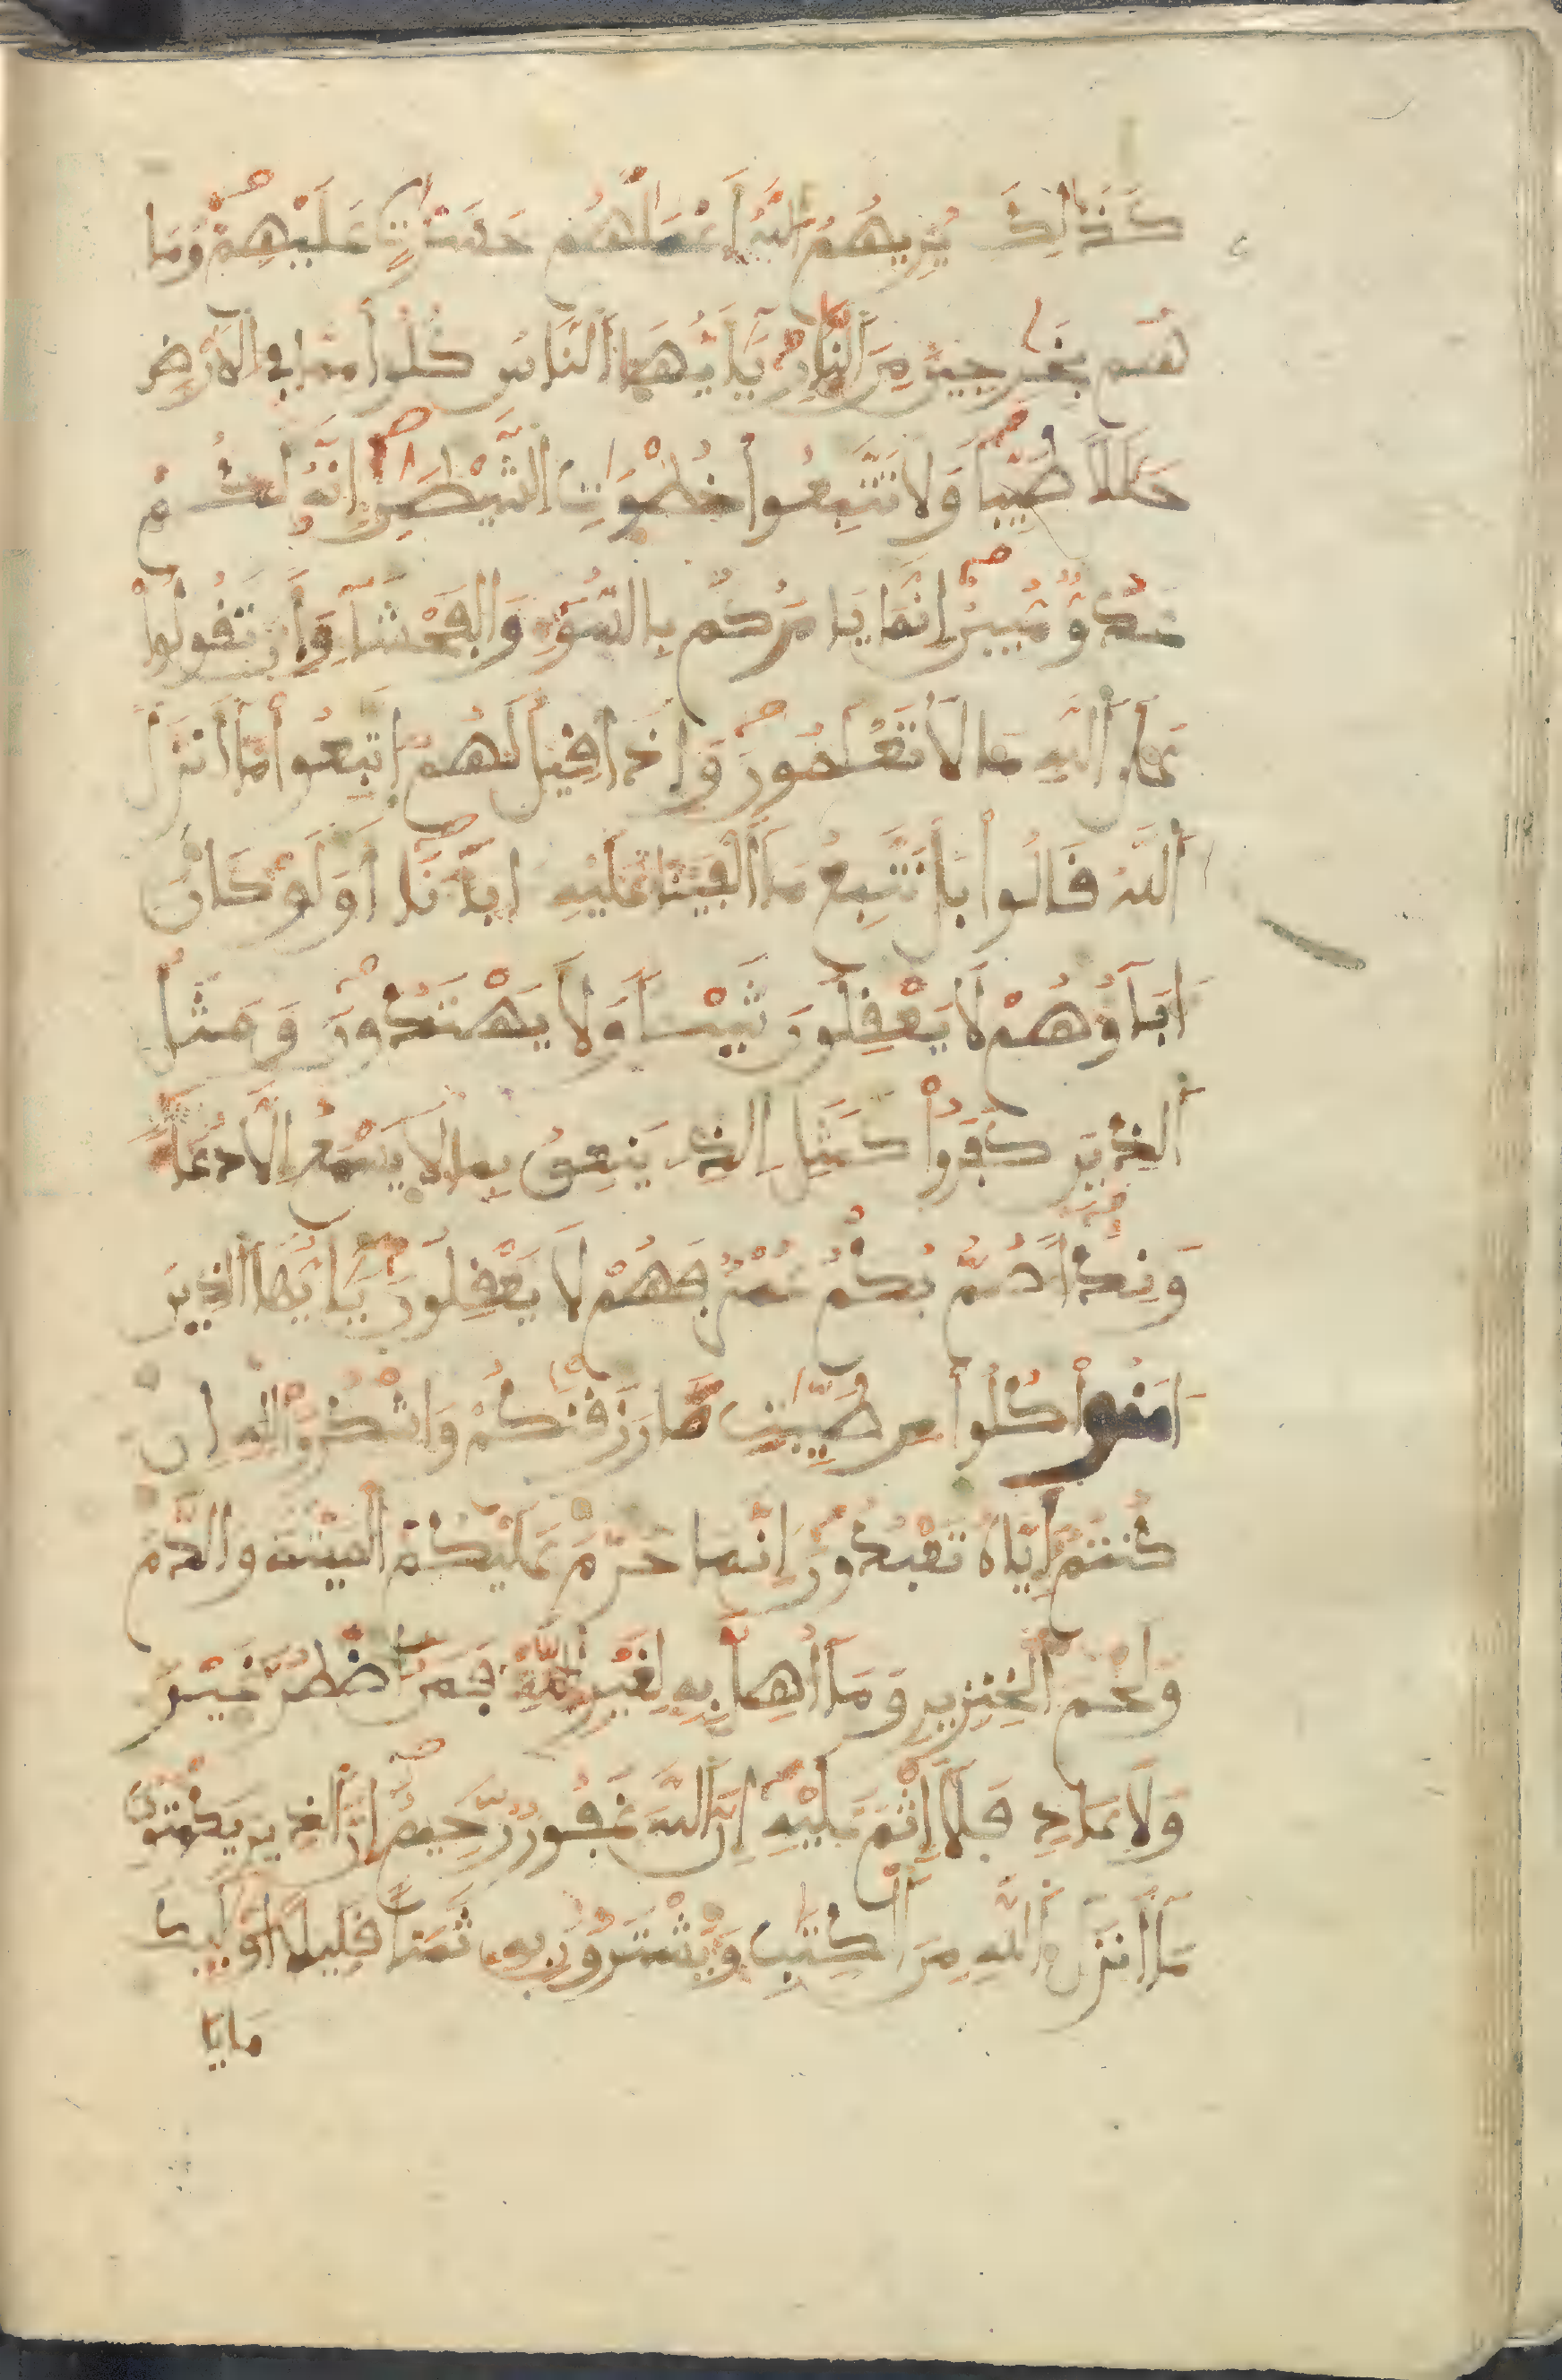 كَذَٰلِكَ يُرِيهُمُ اللَّهُ أَعْمَٰلَهُم حَسَرَٰتٍ عَلَيْهِمْ وَمَا
هُم بِخَٰرِجِينَ مِنَ النَّارِ يَٰأَيُّهَا النَّاسُ كُلُوا مِمَّا فِي الْأَرْضِ
حَلَٰلًا طَيِّبًا وَلَا تَتَّبِعُوا خُطْوَٰتِ الشَّيْطَٰنِ إِنَّهُ لَكُمْ
عَدُوٌّ مُّبِينٌ إِنَّمَا يَامُرُكُم بِالسُّوءِ وَالْفَحْشَآءِ وَأَن تَقُولُوا
عَلَى اللَّهِ مَا لَا تَعْلَمُونَ وَإِذَا قِيلَ لَهُمُ اتَّبِعُوا مَا أَنزَلَ
اَللَّهُ قَالُوا بَلْ نَتَّبِعُ مَا أَلْفَيْنَا عَلَيْهِ ءَابَآءَنَا أَوَلَوْ كَانَ
ءَابَآؤُهُمْ لَا يَعْقِلُونَ شَيْـًٔا وَلَا يَهْتَدُونَ وَمَثَلُ
اَلذِينَ كَفَرُوا كَمَثَلِ الذِي يَنْعِقُ بِمَا لَا يَسْمَعُ إِلَّا دُعَآءً
وَنِدَآءً صُمٌّ بُكْمٌ عُمْيٌ فَهُمْ لَا يَعْقِلُونَ يَٰأَيُّهَا الذِينَ
ءَامَنُوا كُلُوا مِن طَيِّبَٰتِ مَا رَزَقْنَٰكُمْ وَاشْكُرُوا لِلهِ إِن
كُنتُمْ إِيَّاهُ تَعْبُدُونَ إِنَّمَا حَرَّمَ عَلَيْكُمُ الْمَيْتَةَ وَالدَّمَ
وَلَحْمَ الْخِنزِيرِ وَمَا أُهِلَّ بِهِ لِغَيْرِ اللَّهِ فَمَنُ اضْطُرَّ غَيْرَ
بَاغٍ وَلَا عَادٍ فَلَا إِثْمَ عَلَيْهِ إِنَّ اللَّهَ غَفُورٌ رَّحِيمٌ إِنَّ الذِينَ يَكْتُمُونَ
مَا أَنزَلَ اَللَّهُ مِنَ الْكِتَٰبِ وَيَشْتَرُونَ بِهِ ثَمَنًا قَلِيلًا أُوْلَٰئِكَ
مَا يَا